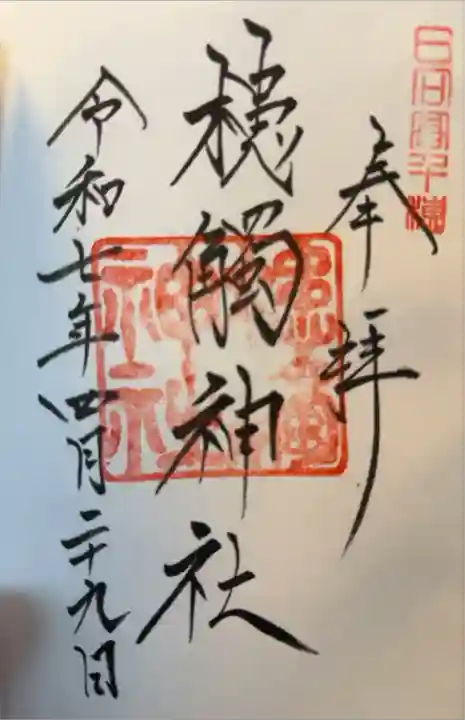 日向高千穂
奉拝
槵觸神社
令和七年四月二十九日